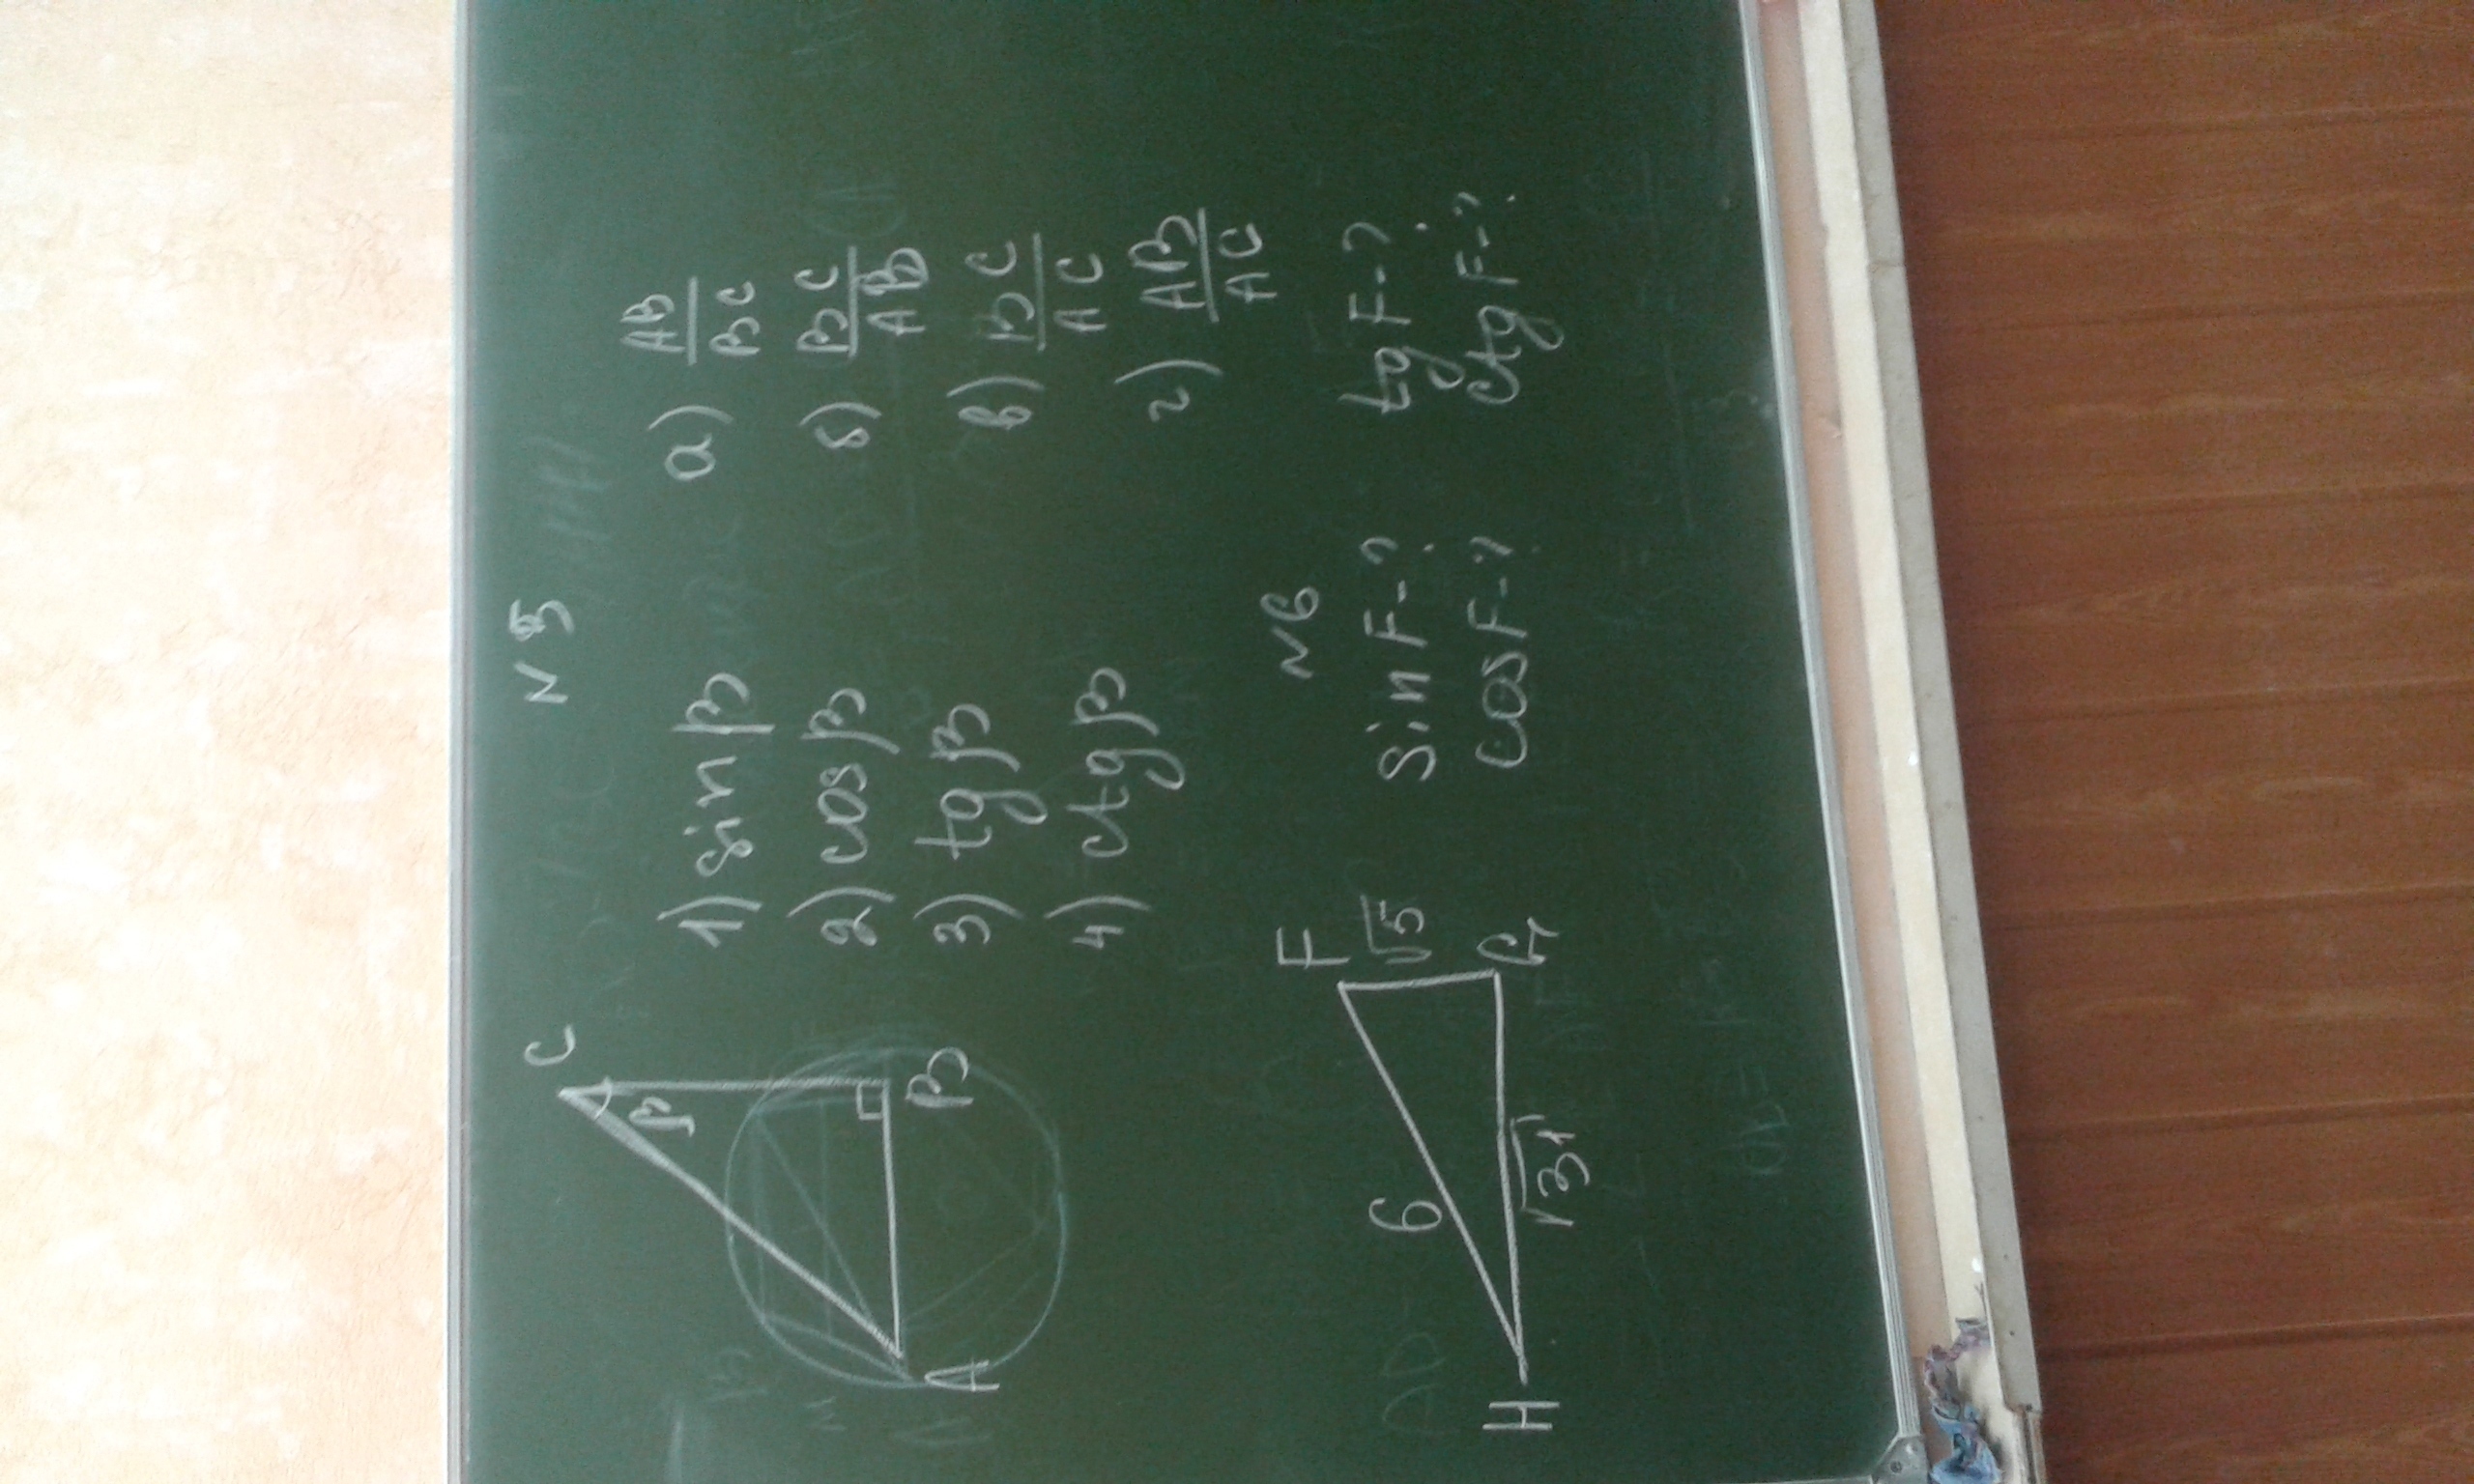 N 5
C
β
A
B
1) sin β
2) cos β
3) tg β
4) ctg β
а) AB/BC
б) BC/AB
в) BC/AC
г) AB/AC
N6
F
6
√5
H
√31
G
sin F-?
cos F-?
tg F-?
ctg F-?